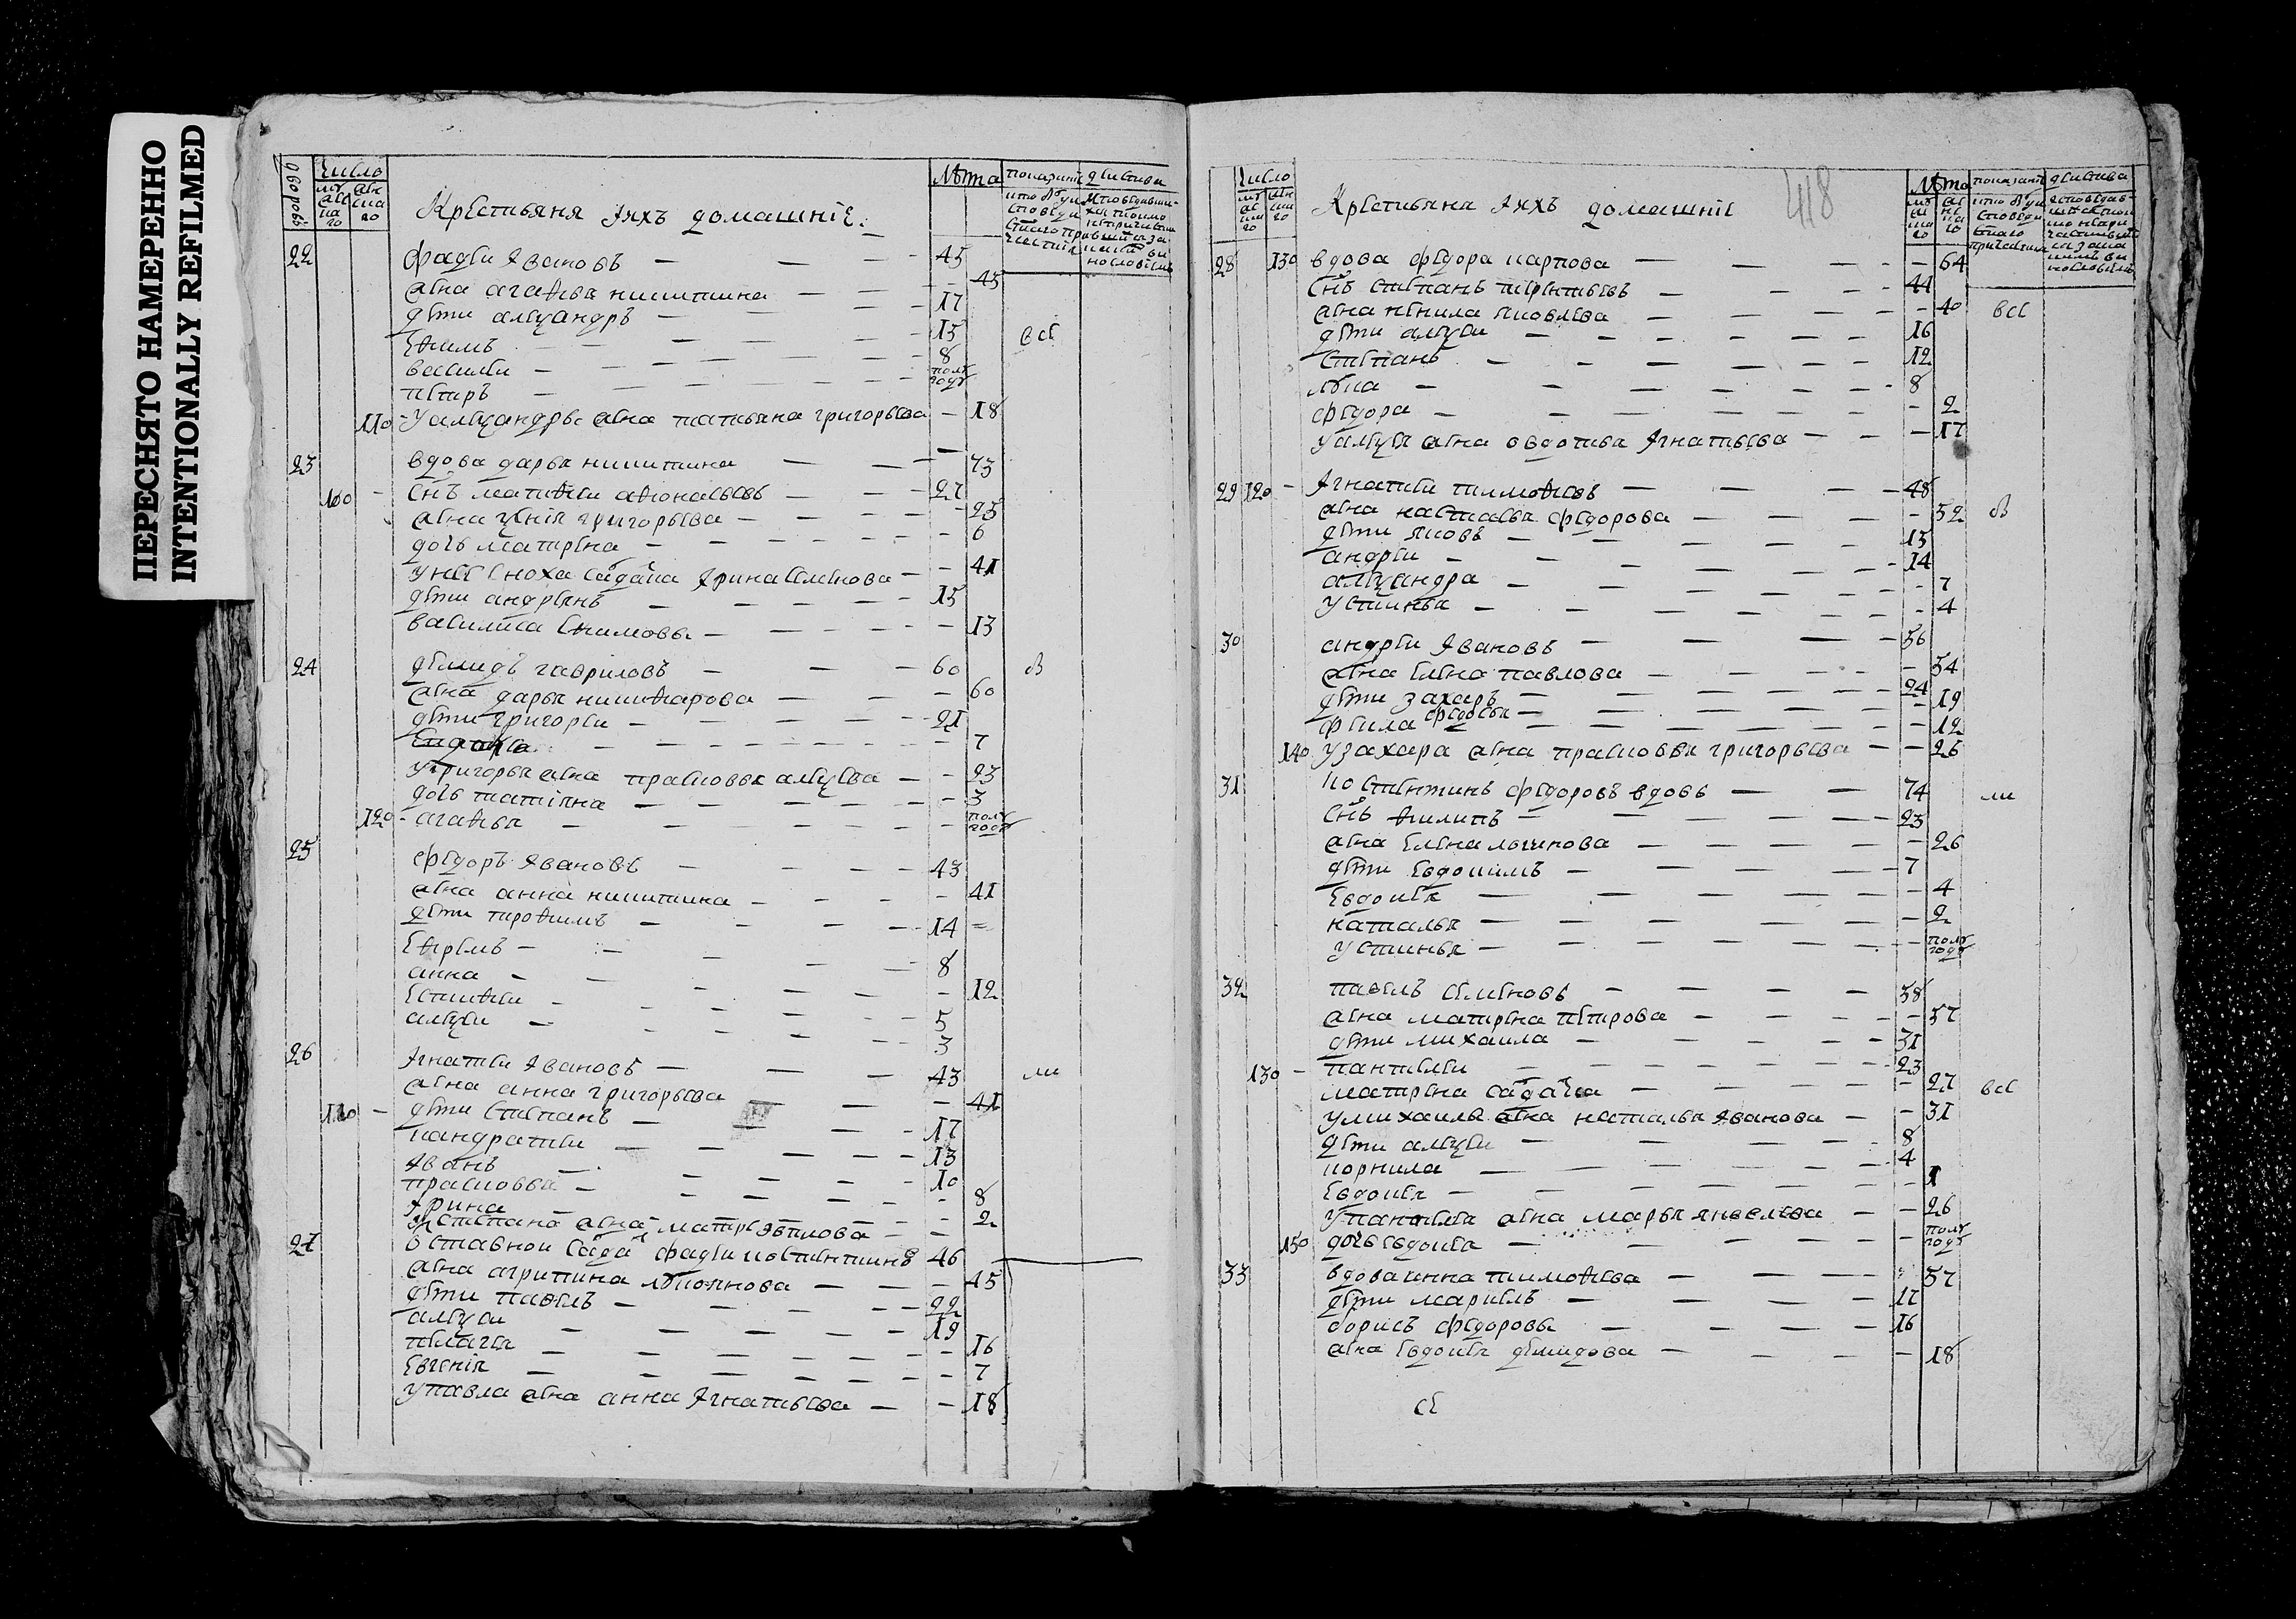 ПЕРЕСНЯТО НАМЕРЕННО
INTENTIONALLY REFILMED
Число
Лѣта
Крестьяня іихъ домашніе.
22 фадеи Ивановъ 45
жена агафья никитина 43
дѣти алеѯандръ 17
Ефимъ 15 всѣ
василеи 8
петръ полъ годъ
110 у алеѯандръ жена татьяна григорьева 18
23 вдова дарья никитина 73
100 Снъ матвѣеи афонасьевъ 27
жена ѯенія григорьева 25
дочь матрена 6
у нее сноха салдатка Ирина Семенова 41
дѣти андреянъ 15
василиса Екимовы 13
24 демидъ гавриловъ 60
жена дарья никифарова 60
дѣти григореи 21
7
у григорья жена прасковья алеѯеева 23
дочь татіяна 3
120 агафья полъ годъ
25 федоръ Ивановъ 43
жена анна никитина 41
дѣти трофимъ 14
Ефремъ 8
анна 12
Естифеи 5
алеѯеи 3
26 Игнатеи Ивановъ 43
жена анна григорьева 41
110 дѣти Степанъ 17
кандратеи 13
Иванъ 10
прасковья 8
Ирина 2
27 Оставнои салдатъ фадеи костентинъ 46
жена агрипина лукоянова 45
дѣти павелъ 22
алеѯеи 19
пелагея 16
Евгенія 7
у павла жена анна Игнатьева 18
418
Число
Лѣта
Крестьяна іихъ домашніе
28 130 вдова федора карпова 64
Снъ степанъ терентьевъ 44
жена ненила яковлева 40 всѣ
дѣти алеѯеи 16
Степанъ 12
лука 8
федора 2
у алеѯея жена овдотья Игнатьева 17
29 120 Игнатеи тимофеевъ 48
жена настасья федорова 52
дѣти яковъ 15
андреи 14
алеѯандра 7
устинья 4
30 андреи Ивановъ 56
жена елена павлова 54
дѣти захаръ 24
федосья 19
фекла 12
140 у захара жена прасковья григорьева 26
31 костентинъ федоровъ вдовъ 74
Снъ филипъ 23
жена Елена логинова 26
дѣти Евдокимъ 7
Евдокея 4
наталья 2
устинья полъ годъ
32 павелъ семеновъ 58
жена матрена петрова 57
дѣти михаила 31
130 пантелеи 23
матрена салдатка 27 всѣ
у михаилы жена наталья Иванова 31
дѣти алеѯеи 8
корнила 4
Евдокея 1
у пантелея жена марья 26
150 дочь евдокея полъ годъ
33 вдова анна тимофеева 57
дѣти маркелъ 17
борисъ федоровы 16
жена Евдокея демидова 18
се